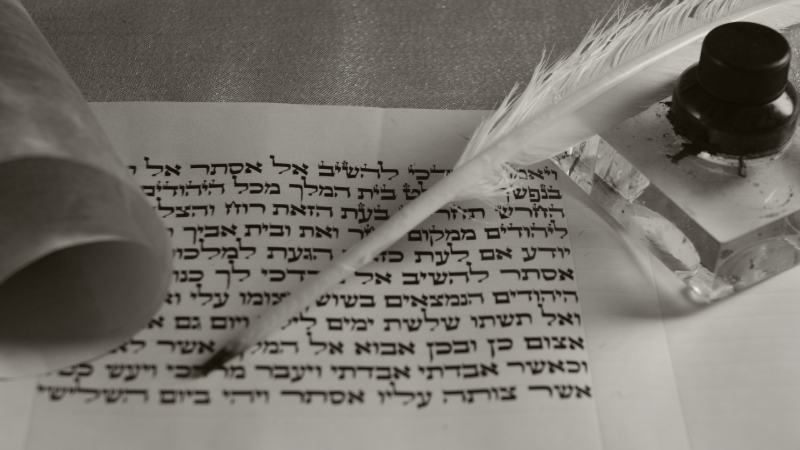 דכי להשיב אל אסתר אל
בנפשך בית המלך מכל היהודים
החרש תחר בעת הזאת רוח והצל
ליהודים ממקום ואת ובית אביך
יודע אם לעת הגעת למלכו
אסתר להשיב אל דכי לך כנו
היהודים הנמצאים בשוש צומו עלי וא
ואל תשתו שלשת ימים ויום גם א
אצום כן ובכן אבוא אל המלך אשר לא
וכאשר אבדתי אבדתי ויעבר מרדכי ויעש ככ
אשר צותה עליו אסתר ויהי ביום השלישי